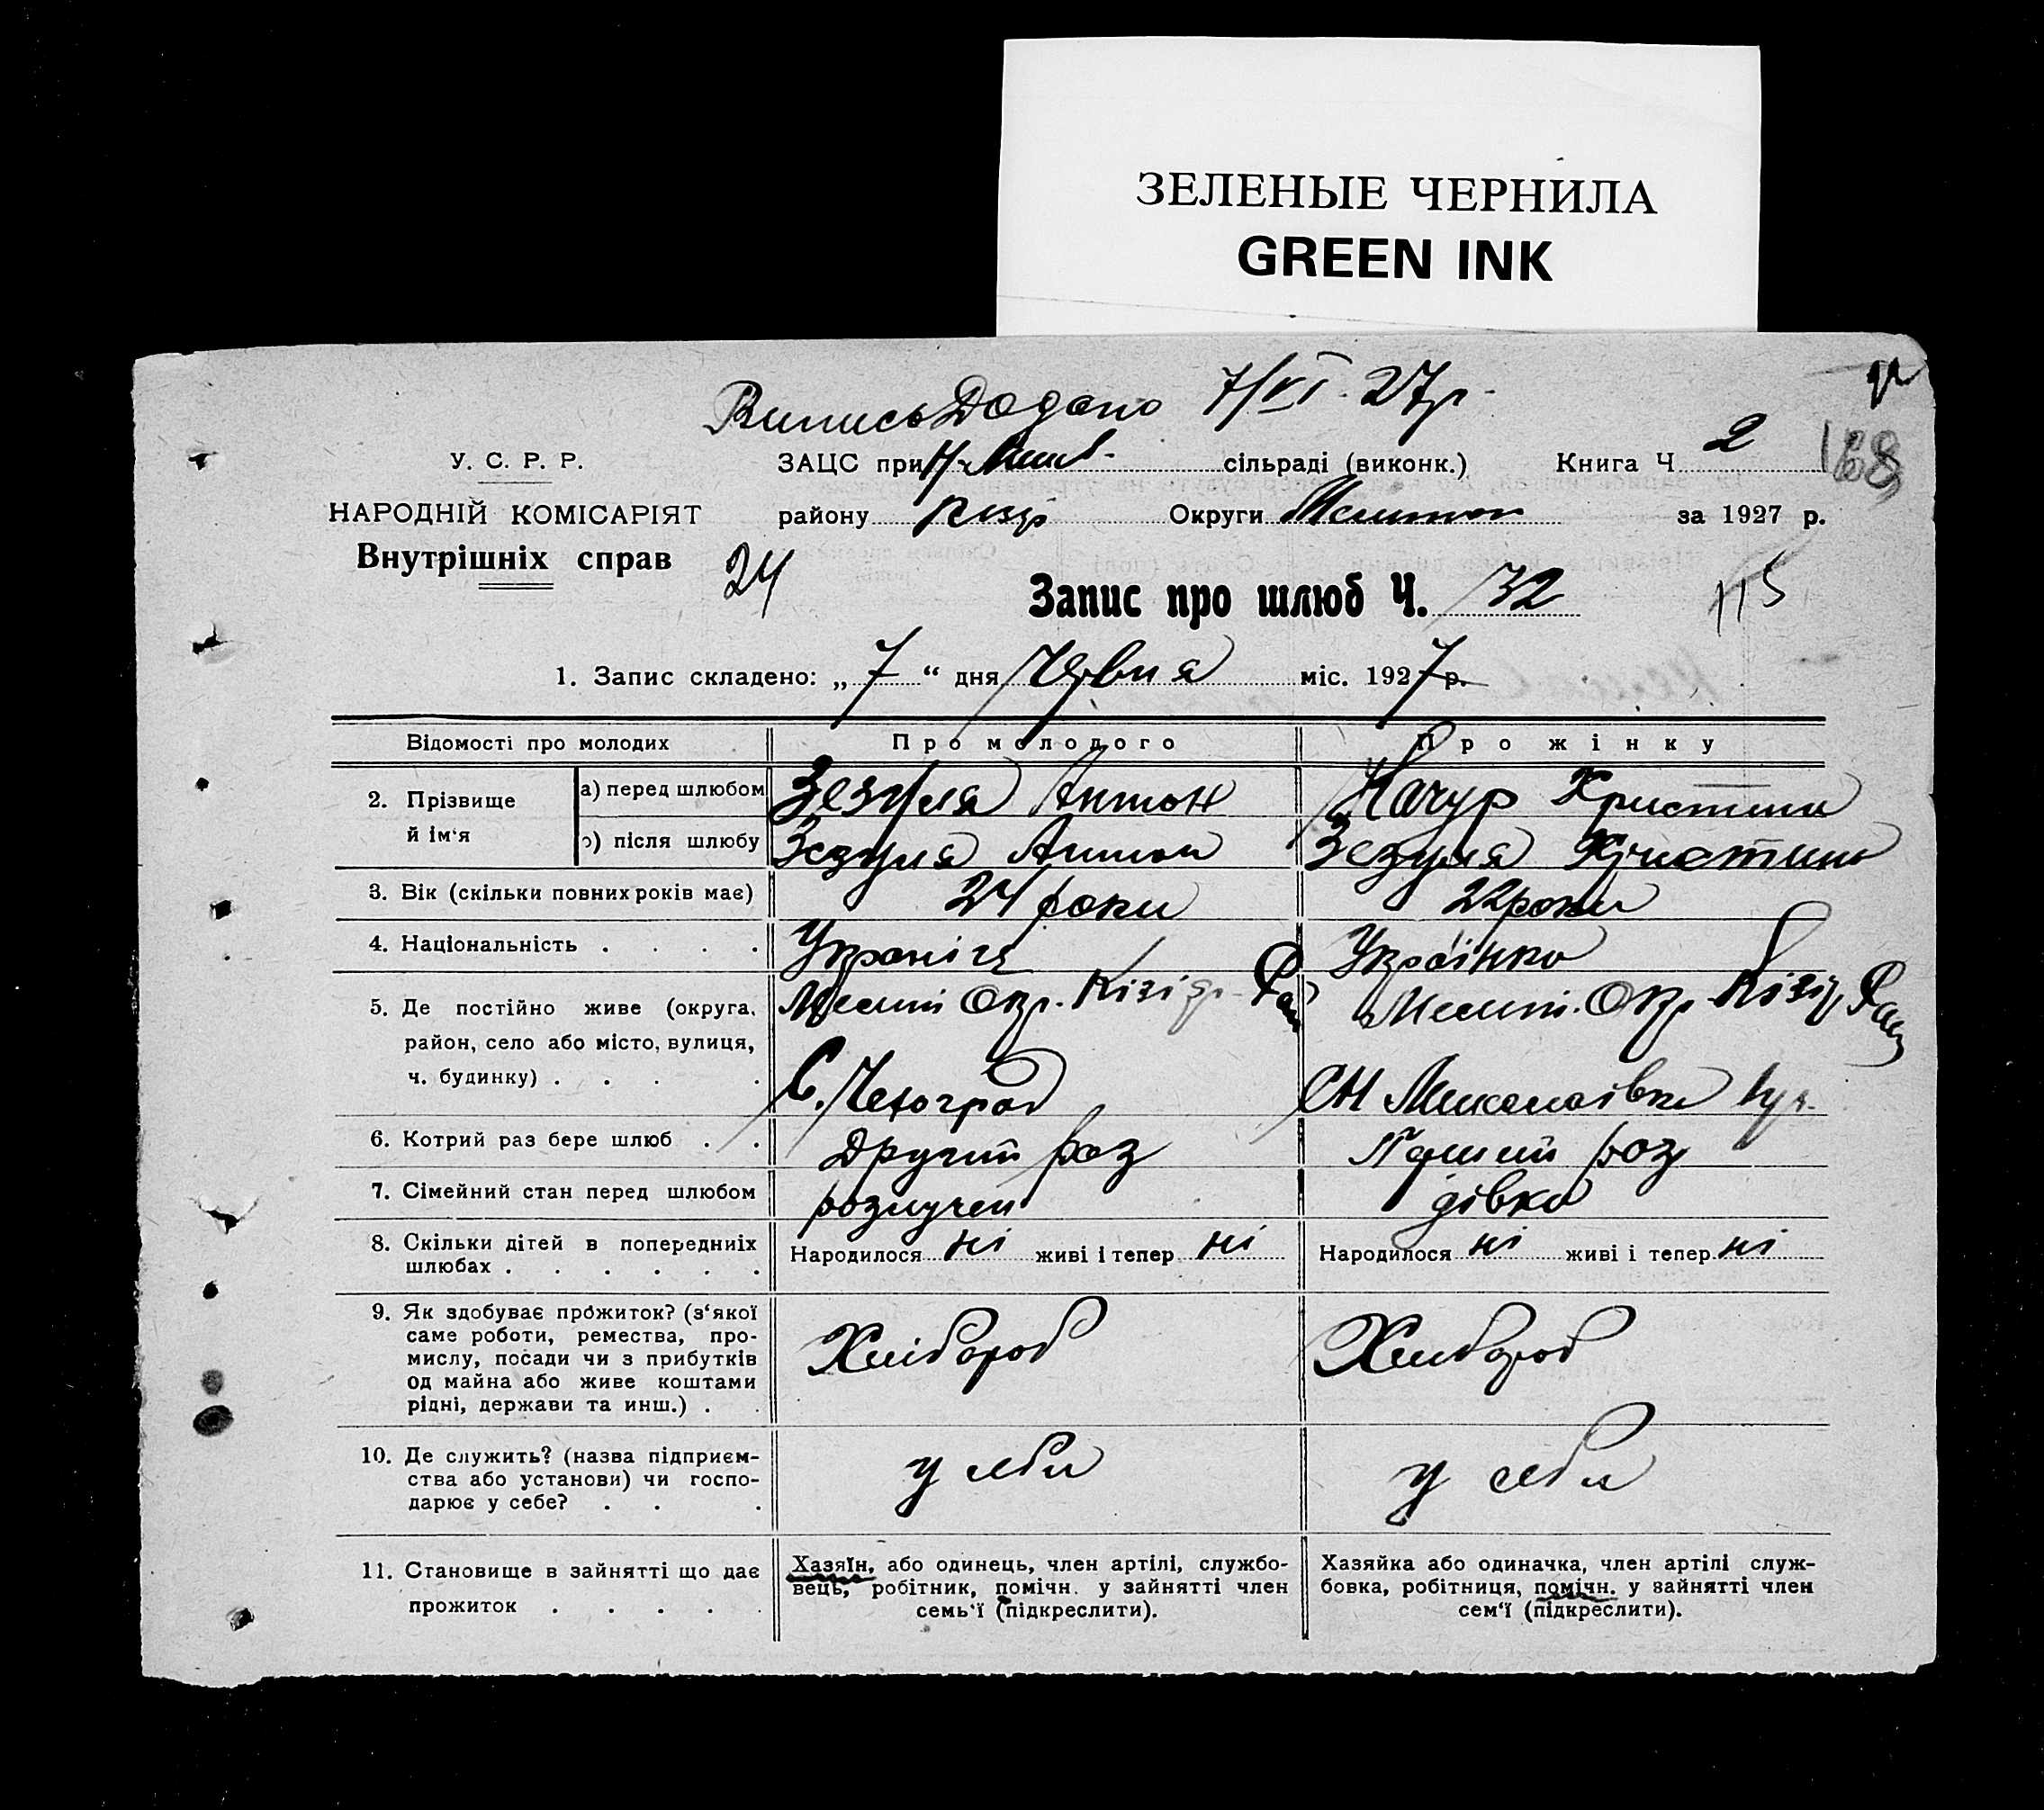 ЗЕЛЕНЫЕ ЧЕРНИЛА
GREEN INK
Випись Додано 7/VI 27р.
У. С. Р. Р.
ЗАЦС при сільраді (виконк.) Книга Ч 2 168
НАРОДНІЙ КОМІСАРІЯТ
району Округи Мелитоп за 1927 р.
Внутрішніх справ
24
Запис про шлюб Ч. 32
115
1. Запис складено: „7“ дня Червня міс. 1927 р.
Відомості про молодих Про молодого Про жінку
2. Прізвище й ім‘я
а) перед шлюбом Зезуля Антон Качур Христина
б) після шлюбу Зезуля Антон Зезуля Христина
3. Вік (скільки повних років має) 24 роки 22 роки
4. Національність . . . . Українка
5. Де постійно живе (округа, Мелит Окр. Кізіяр. Рай Мелит. Окр. Кізіяр Рай
район, село або місто, вулиця,
ч. будинку) . . . . С. Чехоград С Н Миколаївка
6. Котрий раз бере шлюб . . Другий раз Перший раз
7. Сімейний стан перед шлюбом розлучен дівка
8. Скільки дітей в попередниіх шлюбах . . . . . .
Народилося ні живі і тепер ні Народилося ні живі і тепер ні
9. Як здобуває прожиток? (з‘якої
саме роботи, ремества, про-
мислу, посади чи з прибутків
од майна або живе коштами
рідні, держави та инш.) . .
Хлібороб Хлибороб
10. Де служить? (назва підприєм-
ства або установи) чи госпо-
дарює у себе? . . .
у себи у себи
11. Становище в зайнятті що дає
прожиток . . . . .
Хазяїн, або одинець, член артілі, службо-
вець, робітник, помічн. у зайнятті член
семь‘ї (підкреслити).
Хазяйка або одиначка, член артілі служ-
бовка, робітниця, помічн. у зайнятті член
сем‘ї (підкреслити).